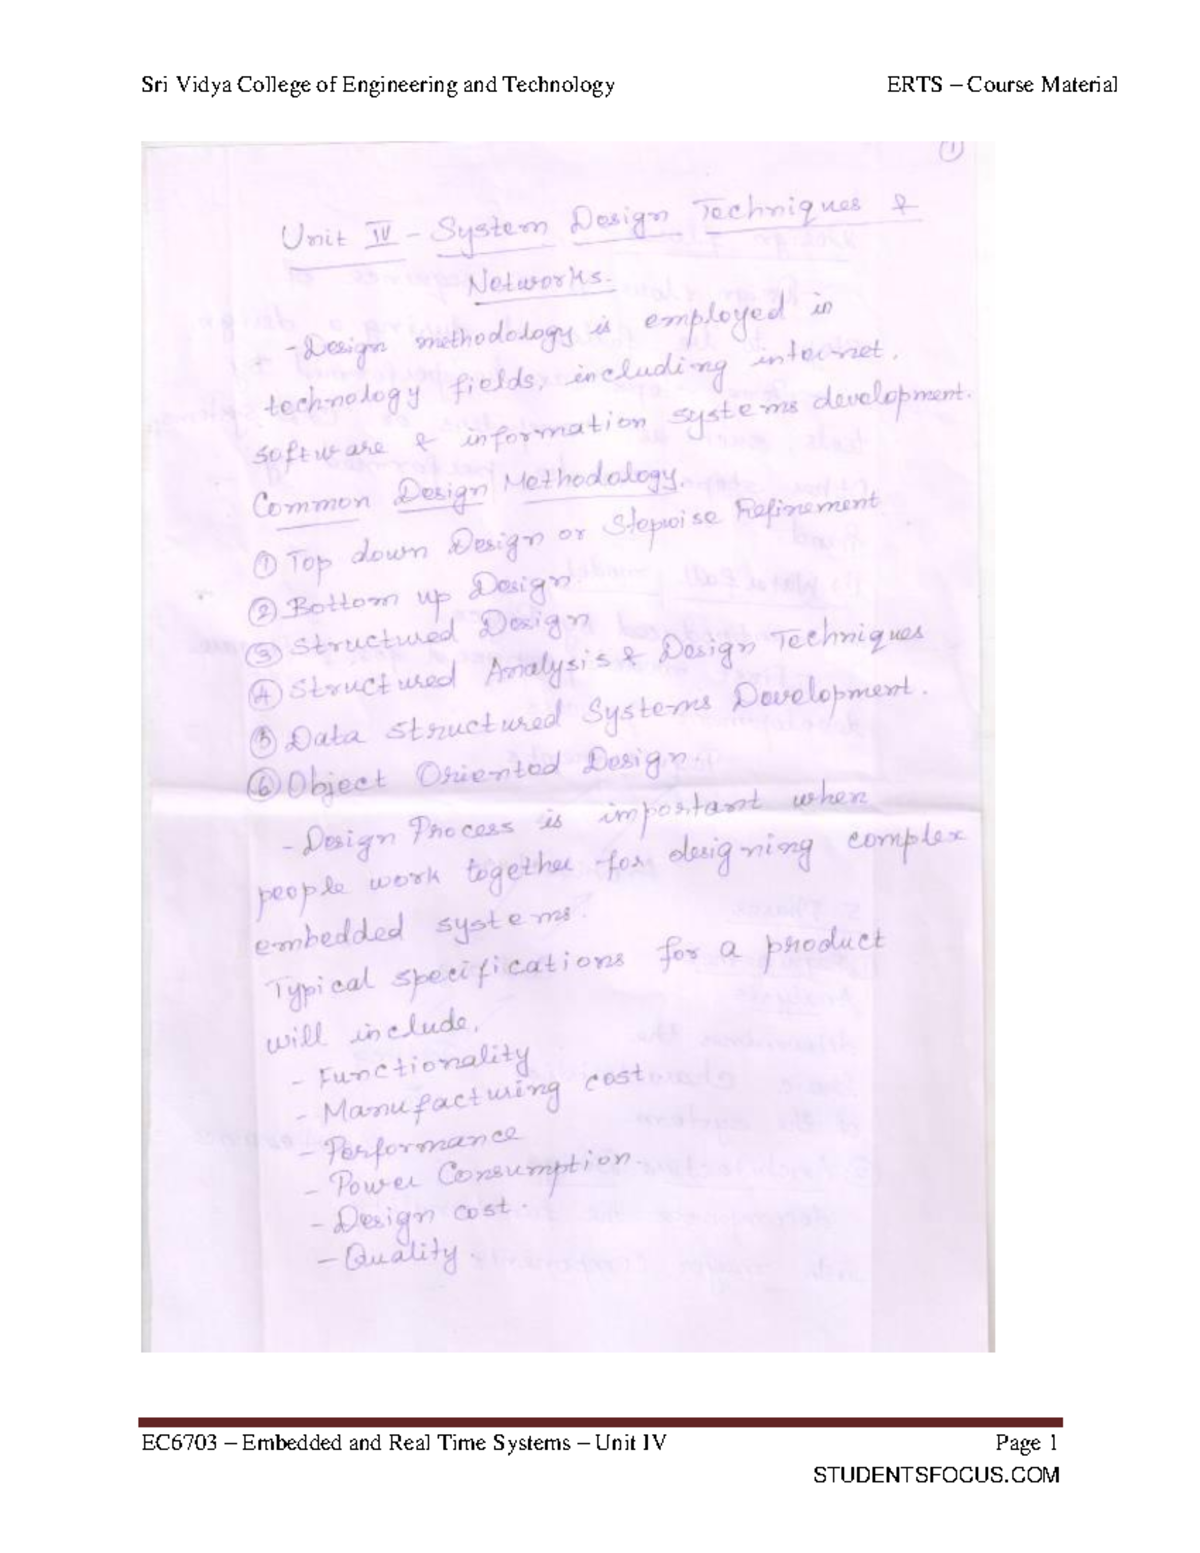 Sri Vidya College of Engineering and Technology ERTS – Course Material
1
Unit IV - System Design Techniques &
Networks.
- Design methodology is employed in
technology fields, including internet,
software & information systems development.
Common Design Methodology.
① Top down Design or Stepwise Refinement
② Bottom up Design
③ Structured Design
④ Structured Analysis & Design Techniques
⑤ Data Structured Systems Development.
⑥ Object Oriented Design.
- Design Process is important when
people work together for designing complex
embedded systems.
Typical specifications for a product
will include,
- Functionality
- Manufacturing cost
- Performance
- Power Consumption.
- Design cost.
- Quality.
EC6703 – Embedded and Real Time Systems – Unit IV Page 1
STUDENTSFOCUS.COM